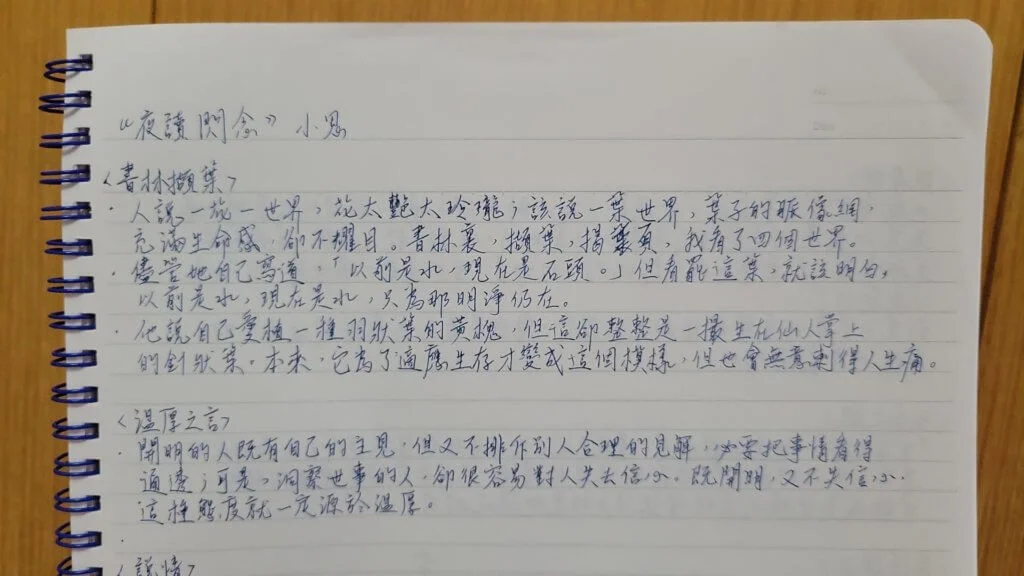 《夜讀閃念》小思
〈書林擷葉〉
· 人說一花一世界，花太艷太玲瓏；該說一葉世界，葉子的脈像網，
充滿生命感，卻不耀目。書林裏，擷葉，揭葉頁，我看了四個世界。
· 儘管她自己寫道，「以前是水，現在是石頭。」但看罷這葉，就該明白，
以前是水，現在是水，只為那明淨仍在。
· 他說自己愛種一種羽狀葉的黃槐，但這卻整整是一撮生在仙人掌上
的針狀葉。本來，它為了適應生存才變成這個模樣，但也會無意刺得人生痛。
〈溫厚之言〉
· 開明的人既有自己的主見，但又不排斥別人合理的見解，必要把事情看得
通透；可是，洞察世事的人，卻很容易對人失去信心。既開明，又不失信心，
這種態度就一定源於溫厚。
·
〈說情〉